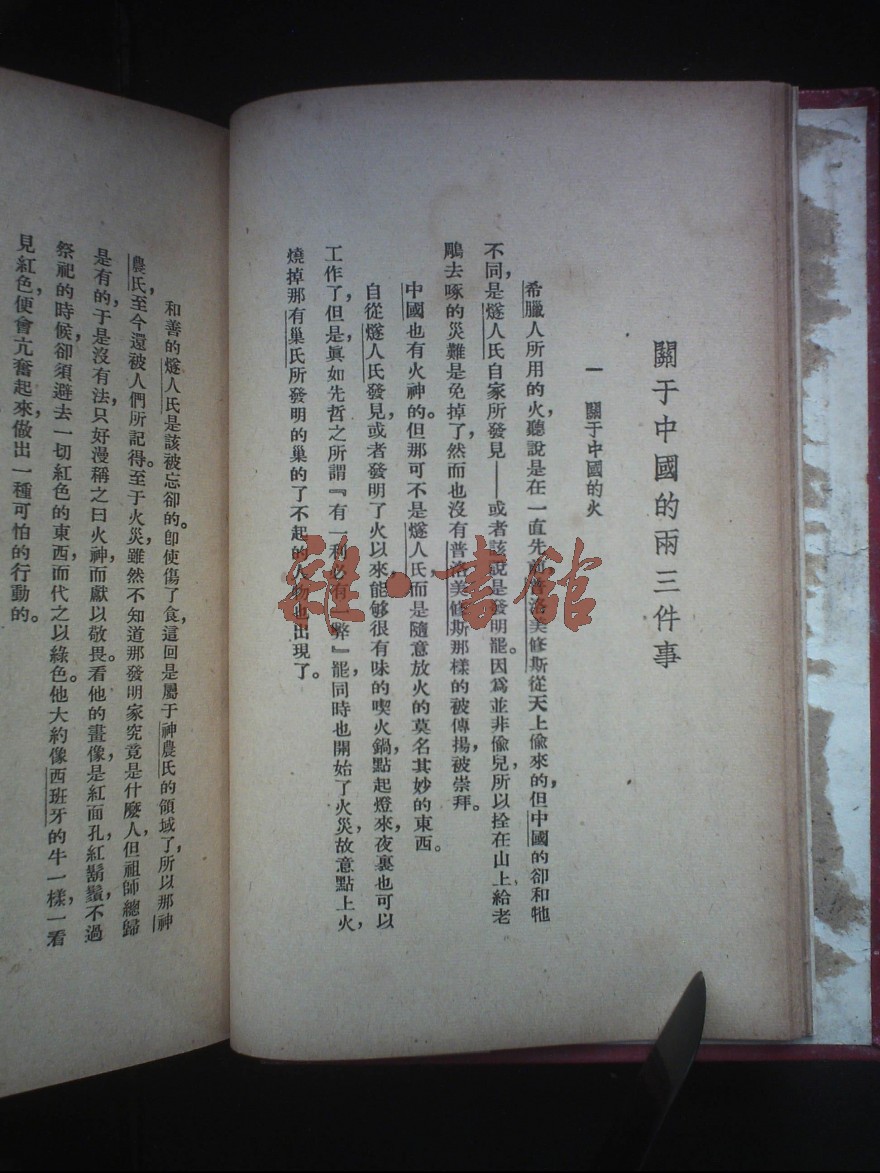 關于中國的兩三件事
一 關于中國的火
希臘人所用的火，聽說是在一直先前，普洛美修斯從天上偷來的，但中國的卻和牠
不同，是燧人氏自家所發見——或者該說是發明罷。因爲並非偷兒，所以拴在山上給老
鵰去啄的災難是免掉了，然而也沒有普洛美修斯那樣的被傳揚，被崇拜。
中國也有火神的。但那可不是燧人氏，而是隨意放火的莫名其妙的東西。
自從燧人氏發見，或者發明了火以來，能够很有味的喫火鍋，點起燈來，夜裏也可以
工作了，但是，眞如先哲之所謂『有一利必有一弊』罷，同時也開始了火災，故意點上火，
燒掉那有巢氏所發明的巢的了不起的人物也出現了。
和善的燧人氏是該被忘卻的。卽使傷了食，這回是屬于神農氏的領域了，所以那神
農氏，至今還被人們所記得。至于火災，雖然不知道那發明家究竟是什麼人，但祖師總歸
是有的，于是沒有法，只好漫稱之曰火神，而獻以敬畏。看他的畫像，是紅面孔，紅鬍鬚，不過
祭祀的時候，卻須避去一切紅色的東西，而代之以綠色。他大約像西班牙的牛一樣，一看
見紅色，便會亢奮起來，做出一種可怕的行動的。
雜·書館